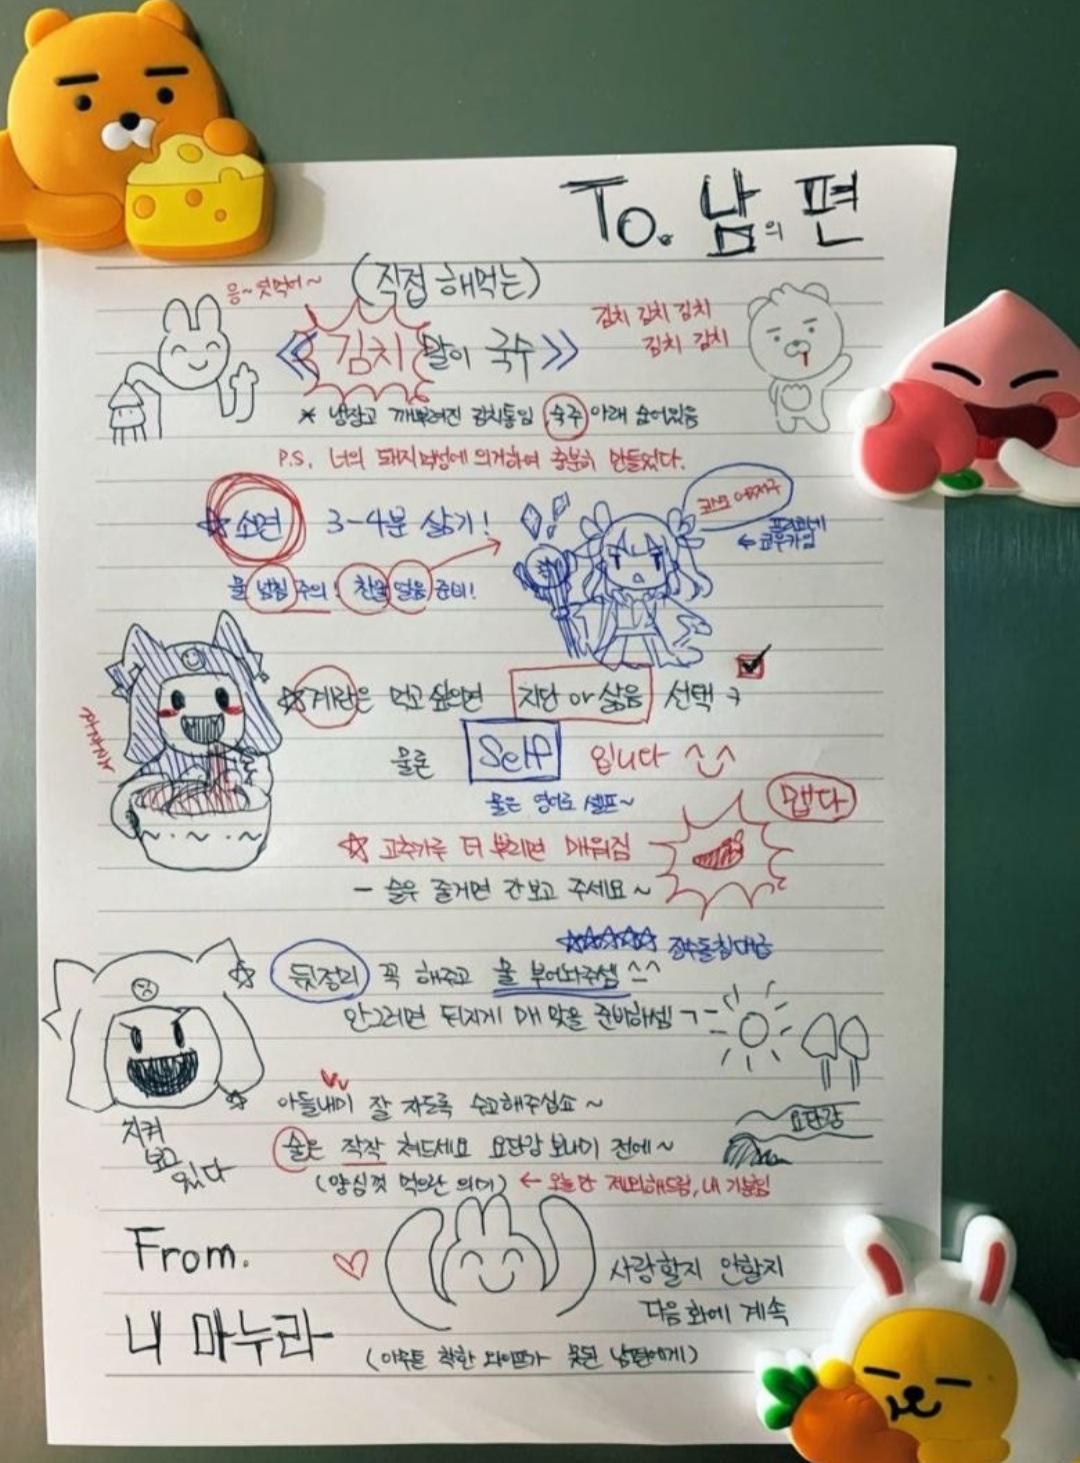 To. 남의 편
(직접 해먹는)
응~ 엿먹어~
《 김치말이 국수 》
김치 김치 김치
김치 김치
* 냉장고 깨부숴진 김치통임 숙주 아래 숨어있음
P.S. 너의 돼지먹성에 의거하여 충분히 만들었다.
☆ 소면 3-4분 삶기!
물 넘침 주의! 찬물 얼음 준비!
☆ 계란은 먹고 싶으면 지단 or 삶음 선택
물론 Self 입니다 ^^
물은 영어로 셀프~
맵다
☆ 고추가루 더 뿌리면 매워짐
- 술우 줄거면 간보고 주세요~
☆☆☆☆☆
☆ 뒷정리 꼭 해주고 물 부어놔주셈 ^^
안그러면 뒤지게 매 맞을 준비하셈
☆ 아들내미 잘 자도록 수고해주십쇼~
지켜
보고
있다
술은 작작 쳐드세요 요단강 보내기 전에~
요단강
(양심껏 먹으란 의미) ← 오늘만 제외해드림, 내 기분임
From.
내 마누라
사랑할지 안할지
다음화에 계속
(아무튼 착한 와이프가 못된 남편에게)